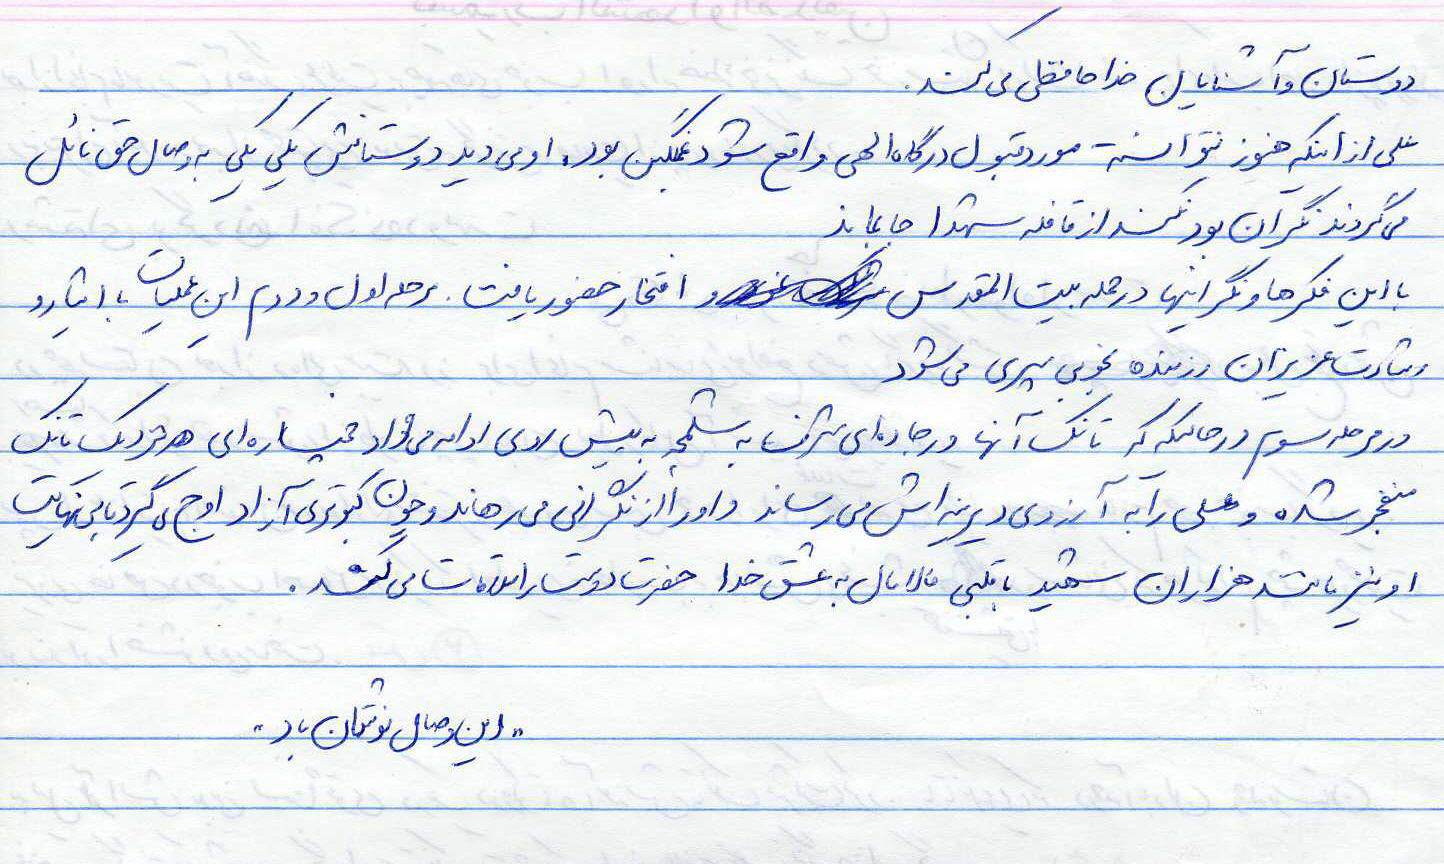 دوستان و آشنایان خداحافظی می‌کند.
علی از اینکه هنوز نتوانسته مورد قبول درگاه الهی واقع شود غمگین بود. او می دید دوستانش یکی یکی به وصال حق نائل
می گردند نگران بود نکند از قافله شهدا جا بماند
با این فکرها و نگرانیها در حمله بیت المقدس و افتخار حضور یافت. مرحله اول و دوم این عملیات با ایثار و
رشادت عزیزان رزمنده بخوبی سپری می شود
در مرحله سوم در حالیکه که تانک آنها در جاده‌ای مشرف به شلمچه به پیش روی ادامه می داد خمپاره‌ای نزدیک تانک
منفجر شده و علی را به آرزوی دیرینه اش می رساند و او را از نگرانی می رهاند و چون کبوتری آزاد اوج می گیرد تا بی نهایت
او نیز مانند هزاران شهید با قلبی مالامال به عشق خدا حضرت دوست را ملاقات می کند.
"این وصال نوشتان باد"